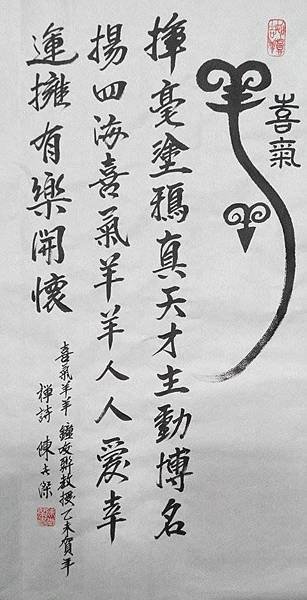 喜氣
羊
揮毫塗鴉真天才主動博名
揚四海喜氣羊羊人人愛幸
運擁有樂開懷
喜氣羊羊 鐘友聯教授乙未賀年
禪詩 陳傑